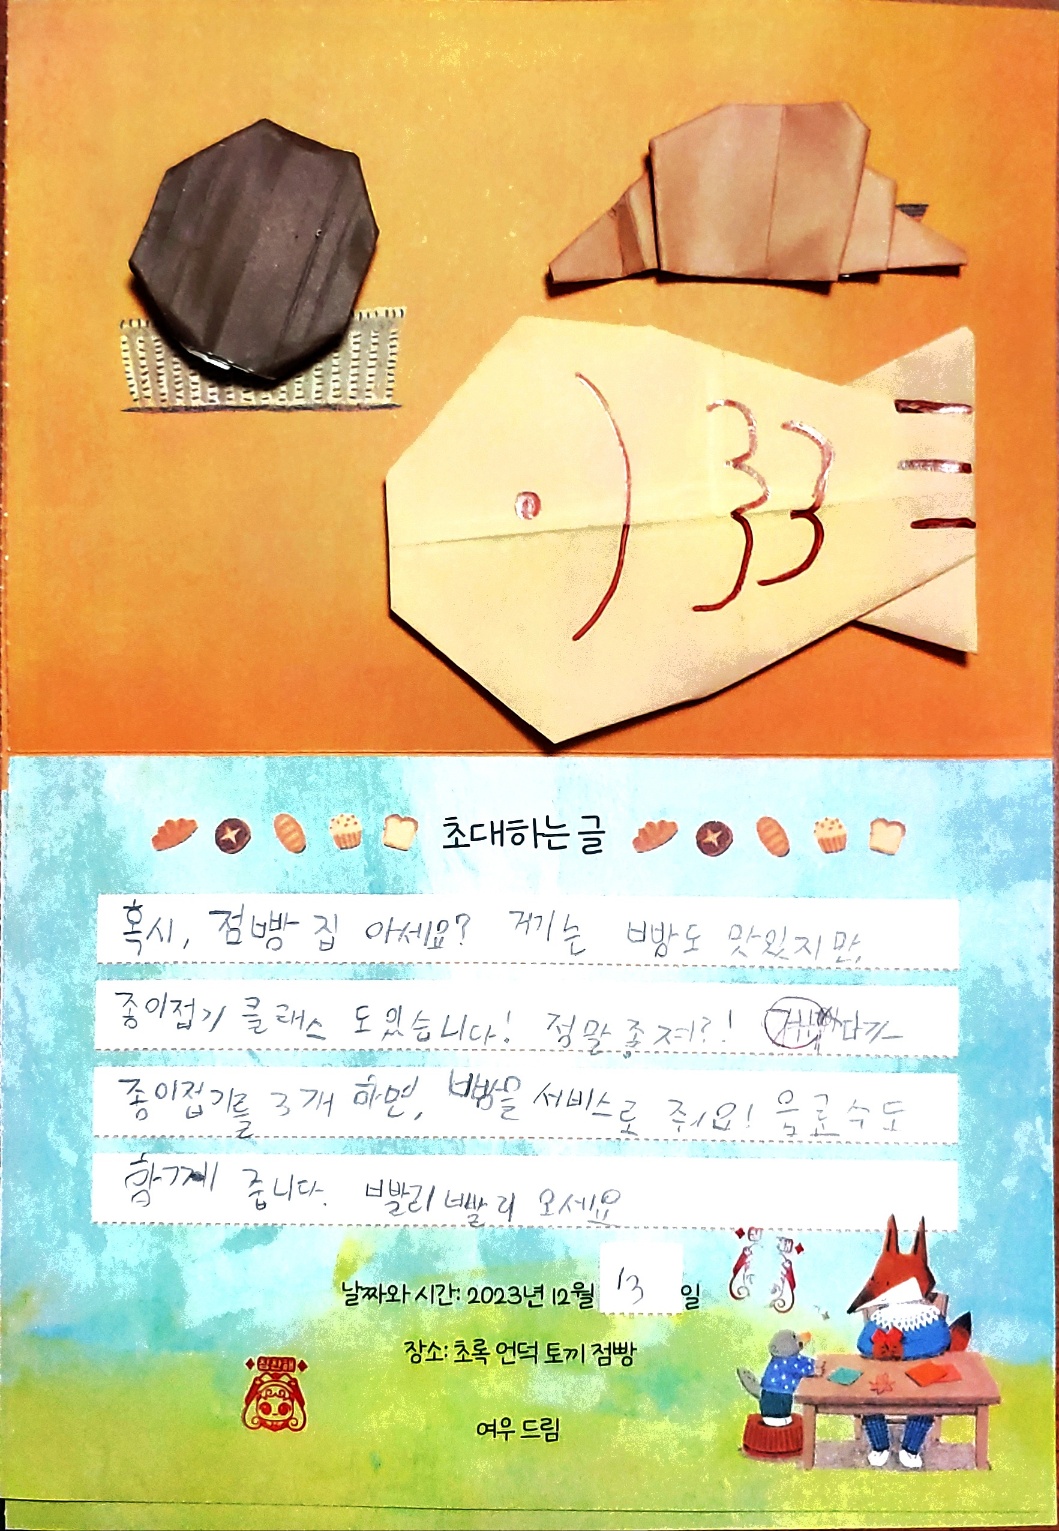 초대하는 글
혹시, 점빵 집 아세요? 거기는 빵도 맛있지만,
종이접기 클래스 도 있습니다! 정말 좋져?!
종이접기를 3개 하면, 빵을 서비스로 주워요! 음료수도
함께 줍니다. 빨리 빨리 오세요
날짜와 시간: 2023년 12월 13 일
장소: 초록 언덕 토끼 점빵
여우 드림
참잘해